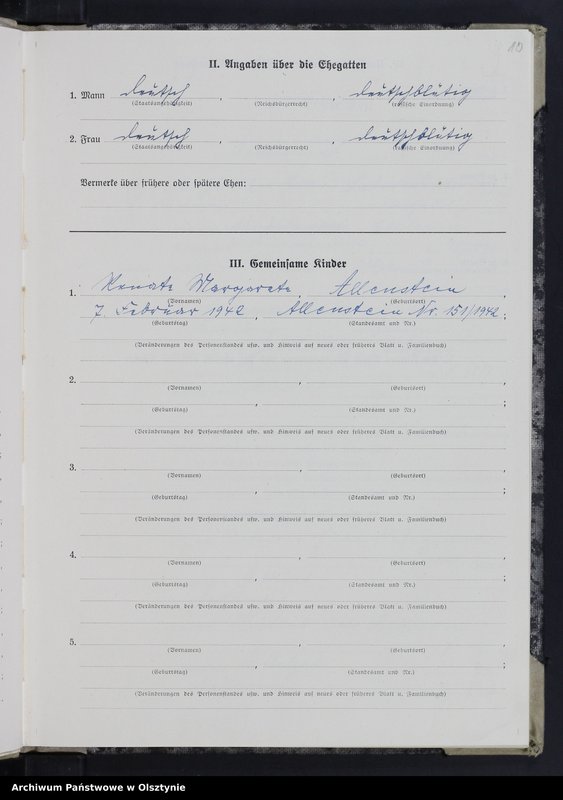 10
II. Angaben über die Ehegatten
1. Mann deutsch , , deutschblütig
(Staatsangehörigkeit) (Reichsbürgerrecht) (rassische Einordnung)
2. Frau deutsch , , deutschblütig
(Staatsangehörigkeit) (Reichsbürgerrecht) (rassische Einordnung)
Vermerke über frühere oder spätere Ehen:
III. Gemeinsame Kinder
1. Renate Margarete , Allenstein ,
(Vornamen) (Geburtsort)
7. Februar 1942 , Allenstein Nr. 151/1942 ;
(Geburtstag) (Standesamt und Nr.)
(Veränderungen des Personenstandes usw. und Hinweis auf neues oder früheres Blatt u. Familienbuch)
2. , ,
(Vornamen) (Geburtsort)
, ;
(Geburtstag) (Standesamt und Nr.)
(Veränderungen des Personenstandes usw. und Hinweis auf neues oder früheres Blatt u. Familienbuch)
3. , ,
(Vornamen) (Geburtsort)
, ;
(Geburtstag) (Standesamt und Nr.)
(Veränderungen des Personenstandes usw. und Hinweis auf neues oder früheres Blatt u. Familienbuch)
4. , ,
(Vornamen) (Geburtsort)
, ;
(Geburtstag) (Standesamt und Nr.)
(Veränderungen des Personenstandes usw. und Hinweis auf neues oder früheres Blatt u. Familienbuch)
5. , ,
(Vornamen) (Geburtsort)
, ;
(Geburtstag) (Standesamt und Nr.)
(Veränderungen des Personenstandes usw. und Hinweis auf neues oder früheres Blatt u. Familienbuch)
Archiwum Państwowe w Olsztynie